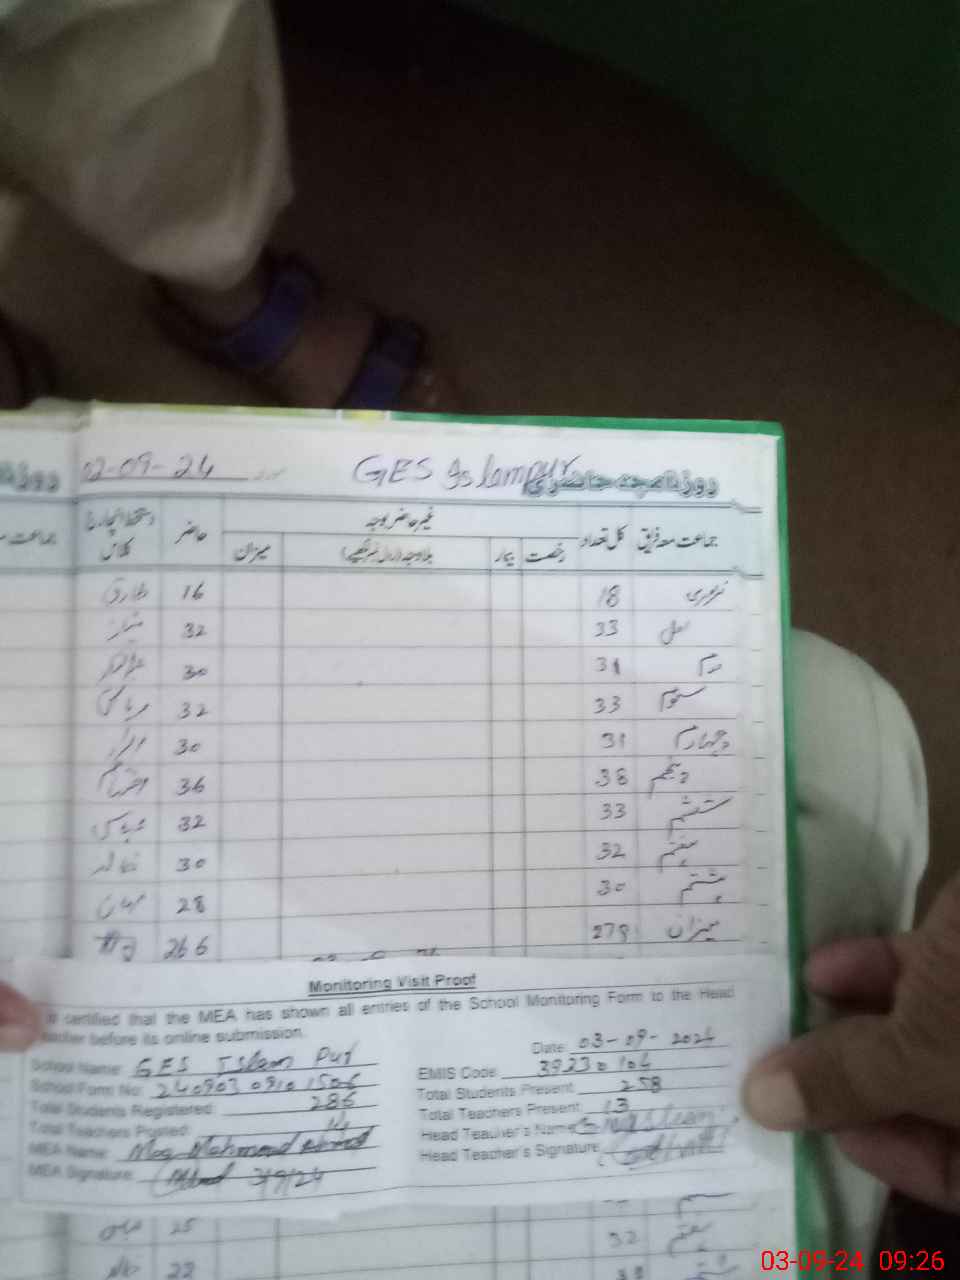 02-09-24 GES Islampur روزنامچہ حاضری
جماعت معہ فریق کل تعداد رخصت بیمار غیر حاضر بوجہ بلاوجہ میزان حاضر دستخط انچارج کلاس
نرسری 18 16 طارق
اول 33 32
دوم 31 30
سوم 33 32
چہارم 31 30
پنجم 38 36
ششم 33 32 عباس
ہفتم 32 30
ہشتم 30 28
میزان 279 266
Monitoring Visit Proof
certified that the MEA has shown all entries of the School Monitoring Form to the Head
before its online submission.
Date: 03-09-2024
School Name: GES Islam Pur
EMIS Code: 39230104
School Form No: 240903 0910 1506
Total Students Present: 258
Total Students Registered: 286
Total Teachers Present: 13
Total Teachers Posted: 14
Head Teacher's Name:
MEA Name: Mahmood
Head Teacher's Signature:
MEA Signature: 3/9/24
25
ہفتم 32
22
03-09-24 09:26